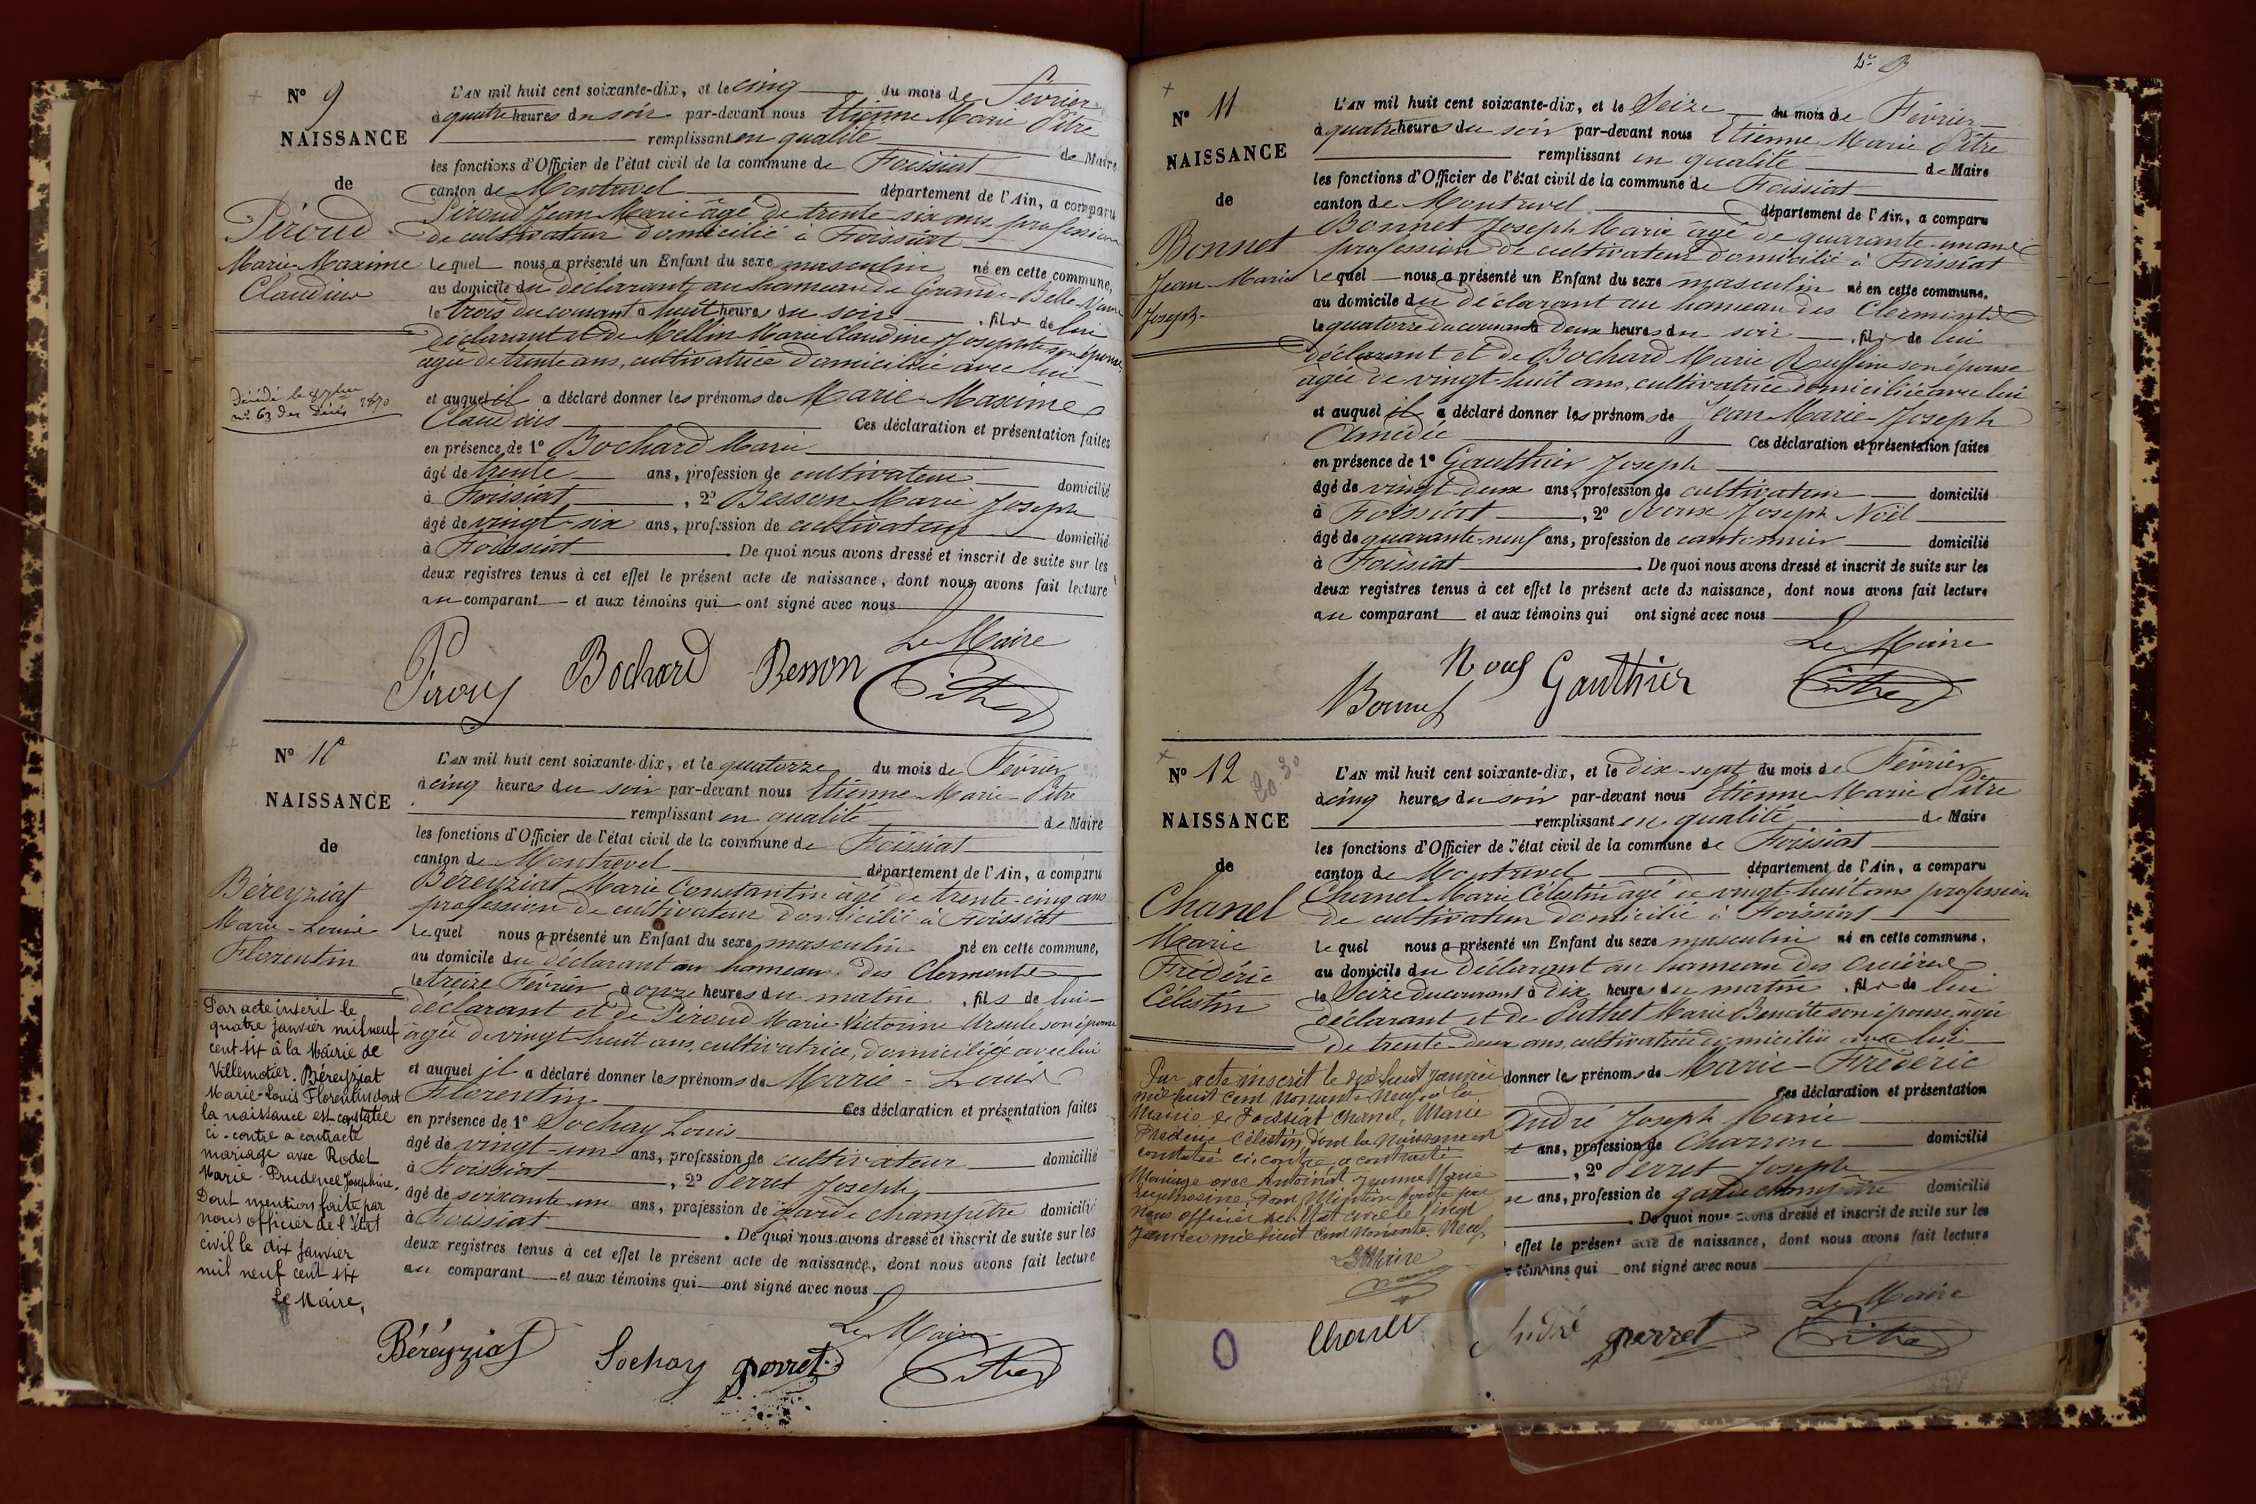 N° 9
NAISSANCE
de
Péroud
Marie-Maxime
Claudius
décédé le 8 7bre 1870
n° 63 des Décès
L'AN mil huit cent soixante-dix, et le cinq du mois de Février
à quatre heures du soir par-devant nous Etienne Marie Pitre
remplissant en qualité de Maire
les fonctions d'Officier de l'état civil de la commune de Foissiat
canton de Montrevel département de l'Ain, a comparu
Péroud Jean Marie âgé de trente-six ans, profession
de cultivateur domicilié à Foissiat
lequel nous a présenté un Enfant du sexe masculin né en cette commune,
au domicile du déclarant, au hameau de Grand-Belle-Vavre
le trois du courant à huit heures du soir, fils de lui
déclarant et de Mellin Marie Claudine Josephte son épouse
âgée de trente ans, cultivatrice domiciliée avec lui
et auquel il a déclaré donner les prénoms de Marie-Maxime
Claudius Ces déclaration et présentation faites
en présence de 1° Bochard Marie
âgé de trente ans, profession de cultivateur domicilié
à Foissiat, 2° Besson Marie Joseph
âgé de vingt-six ans, profession de cultivateur domicilié
à Foissiat. De quoi nous avons dressé et inscrit de suite sur les
deux registres tenus à cet effet le présent acte de naissance, dont nous avons fait lecture
au comparant et aux témoins qui ont signé avec nous
Le Maire
Péroud Bochard Besson Pitre
N° 10
NAISSANCE
de
Béreyziat
Marie-Louis
Florentin
Par acte inscrit le
quatre janvier mil neuf
cent six à la Mairie de
Villemotier. Béreyziat
Marie-Louis Florentin dont
la naissance est constatée
ci-contre a contracté
mariage avec Rodet
Marie-Prudence Joséphine.
Dont mention faite par
nous officier de l'état
civil le dix janvier
mil neuf cent six
Le Maire,
L'AN mil huit cent soixante-dix, et le quatorze du mois de Février
à cinq heures du soir par-devant nous Etienne Marie Pitre
remplissant en qualité de Maire
les fonctions d'Officier de l'état civil de la commune de Foissiat
canton de Montrevel département de l'Ain, a comparu
Béreyziat Marie Constantin âgé de trente-cinq ans
profession de cultivateur domicilié à Foissiat
lequel nous a présenté un Enfant du sexe masculin né en cette commune,
au domicile du déclarant au hameau des Clermonts
le treize Février à onze heures du matin, fils de lui
déclarant et de Péroud Marie Victorine Ursule son épouse
âgée de vingt-huit ans, cultivatrice, domiciliée avec lui
et auquel il a déclaré donner les prénoms de Marie-Louis
Florentin Ces déclaration et présentation faites
en présence de 1° Sochay Louis
âgé de vingt-un ans, profession de cultivateur domicilié
à Foissiat, 2° Perret Joseph
âgé de soixante un ans, profession de garde champêtre domicilié
à Foissiat. De quoi nous avons dressé et inscrit de suite sur les
deux registres tenus à cet effet le présent acte de naissance, dont nous avons fait lecture
au comparant et aux témoins qui ont signé avec nous
Le Maire
Béréyziat Sochay perret Pitre
N° 11
NAISSANCE
de
Bonnet
Jean-Marie
Joseph
L'AN mil huit cent soixante-dix, et le Seize du mois de Février
à quatre heures du soir par-devant nous Etienne Marie Pitre
remplissant en qualité de Maire
les fonctions d'Officier de l'état civil de la commune de Foissiat
canton de Montrevel département de l'Ain, a comparu
Bonnet Joseph Marie âgé de quarante-un ans
profession de cultivateur domicilié à Foissiat
lequel nous a présenté un Enfant du sexe masculin né en cette commune,
au domicile du déclarant au hameau des Clermonts
le quatorze du courant à deux heures du soir, fils de lui
déclarant et de Bochard Marie Ruffine son épouse
âgée de vingt-huit ans, cultivatrice domiciliée avec lui
et auquel il a déclaré donner les prénoms de Jean-Marie-Joseph
Amédée Ces déclaration et présentation faites
en présence de 1° Gauthier Joseph
âgé de vingt deux ans, profession de cultivateur domicilié
à Foissiat, 2° Roux Joseph Noël
âgé de quarante-neuf ans, profession de cantonnier domicilié
à Foissiat. De quoi nous avons dressé et inscrit de suite sur les
deux registres tenus à cet effet le présent acte de naissance, dont nous avons fait lecture
au comparant et aux témoins qui ont signé avec nous
Le Maire
Bonnet Gauthier Pitre
N° 12
NAISSANCE
de
Chanel
Marie
Frédéric
Célestin
L'AN mil huit cent soixante-dix, et le dix-sept du mois de Février
à cinq heures du soir par-devant nous Etienne Marie Pitre
remplissant en qualité de Maire
les fonctions d'Officier de l'état civil de la commune de Foissiat
canton de Montrevel département de l'Ain, a comparu
Chanel Marie Célestin âgé de vingt-huit ans profession
de cultivateur domicilié à Foissiat
lequel nous a présenté un Enfant du sexe masculin né en cette commune,
au domicile du déclarant au hameau des
le Seize du courant à dix heures du matin, fils de lui
déclarant et de Puthet Marie Benoîte son épouse, âgée
de trente-deux ans, cultivatrice domiciliée avec lui
donner les prénoms de Marie-Fréderic
Ces déclaration et présentation
André Joseph Marie
ans, profession de Charron domicilié
, 2° Perret Joseph
ans, profession de garde champêtre domicilié
. De quoi nous avons dressé et inscrit de suite sur les
effet le présent acte de naissance, dont nous avons fait lecture
témoins qui ont signé avec nous
Par acte inscrit le dix huit Janvier
mil huit cent nonante neuf à la
Mairie de Foissiat Chanel, Marie
Frédéric Célestin, dont la naissance est
constatée ci-contre, a contracté
Mariage avec Antoinat Jeanne Marie
Euphrosine, dont Mention faite par
Nous officier de l'Etat civil le vingt
Janvier mil huit cent nonante neuf
Le Maire
Le Maire
Chanel André perret Pitre